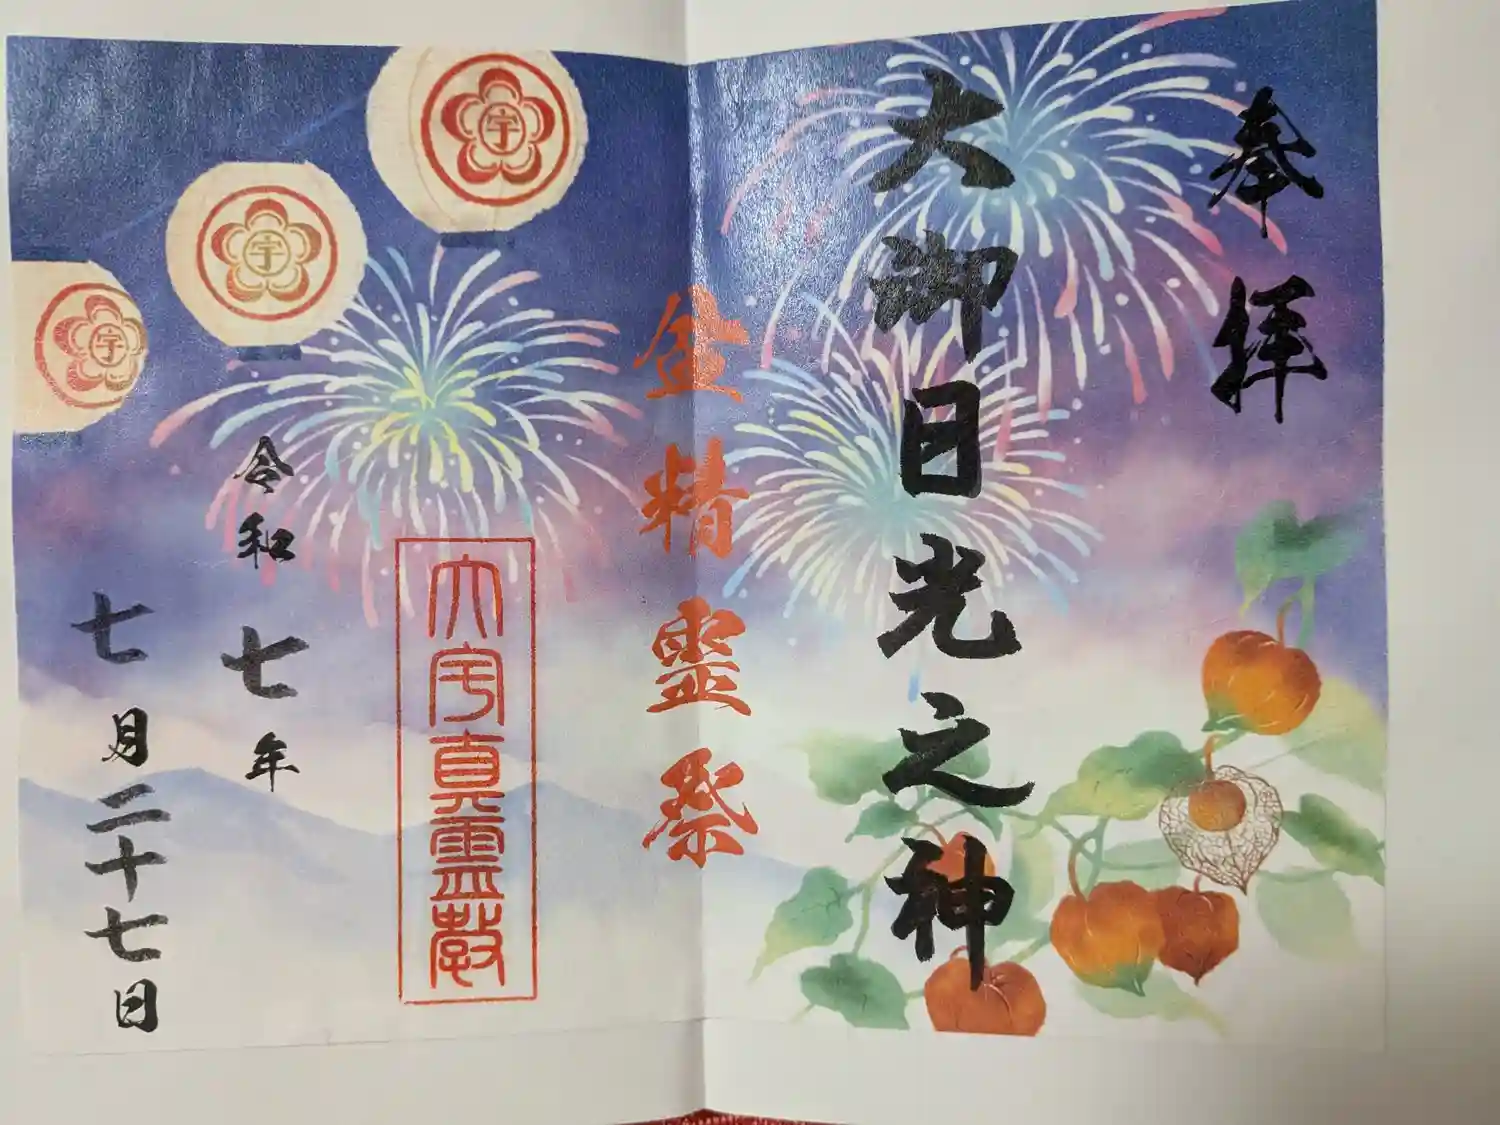 奉拝
大御日光之神
盆精霊祭
大宇真靈教
令和七年
七月二十七日
宇
宇
宇